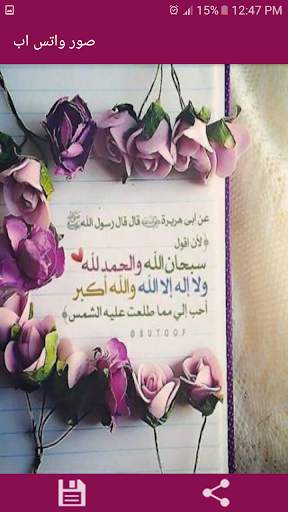 15% 12:47 PM
صور واتس اب
عن أبى هريرة ﷺ قال قال رسول الله ﷺ
﴿لأن اقول
سبحان الله والحمد لله
ولا إله إلا الله والله أكبر
أحب إلي مما طلعت عليه الشمس﴾
@RUTOOF